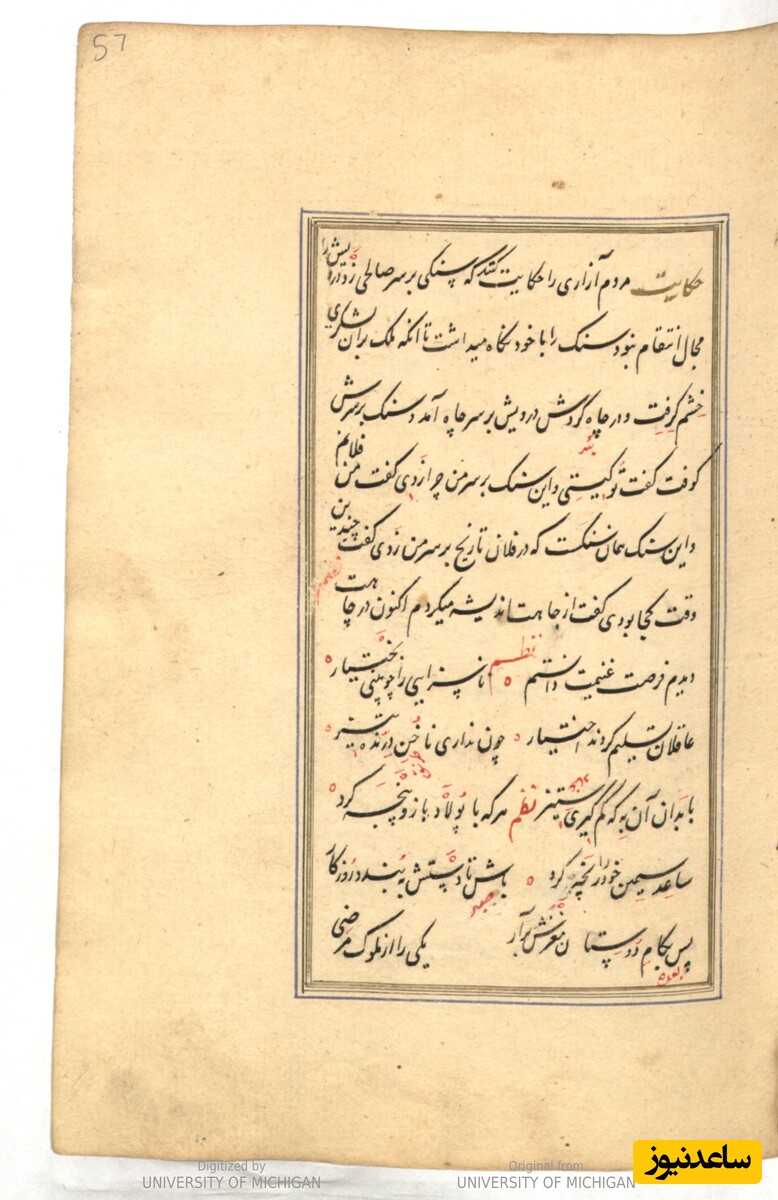 57
حکایت مردم آزاری را حکایت کنند که سنگی بر سر صالحی زد درویش را
مجال انتقام نبود سنگ را با خود نگاه میداشت تا انکه ملک بران لشکری
خشم گرفت و در چاه کردش درویش بر سر چاه آمد و سنگ بر سرش
کوفت گفت تو کیستی و این سنگ بر سر من چرا زدی گفت من فلانم
و این سنگ همان سنگست که در فلان تاریخ بر سر من زدی گفت چندین
وقت کجا بودی گفت از جاهت اندیشه میکردم اکنون در چاهت
دیدم فرصت غنیمت دانستم نظم ناسزایی را چو بینی بختیار
عاقلان تسلیم کردند اختیار چون نداری ناخن درنده تیز
با بدان آن به که کم گیری ستیز نظم هر که با پولاد بازو پنجه کرد
ساعد سیمین خود را رنجه کرد باش تا دستش ببندد روزگار
پس بکام دوستان مغزش برآر یکی را از ملوک مرضی
Digitized by
UNIVERSITY OF MICHIGAN
Original from
UNIVERSITY OF MICHIGAN
ساعدنیوز